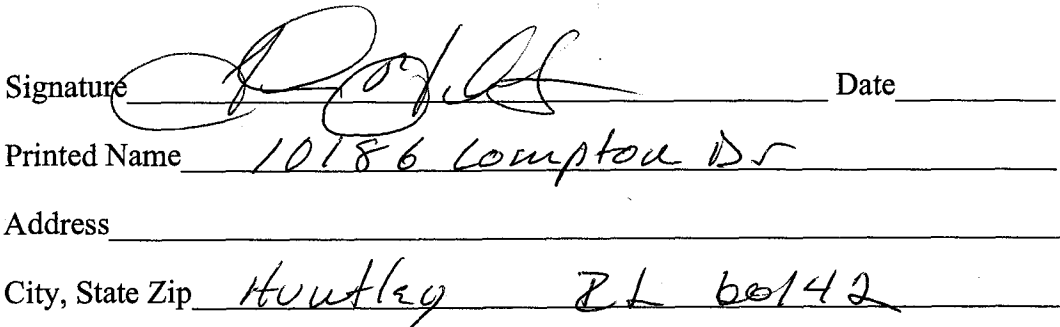 Signature Date
Printed Name 10186 Compton Dr
Address
City, State Zip Huntley IL 60142